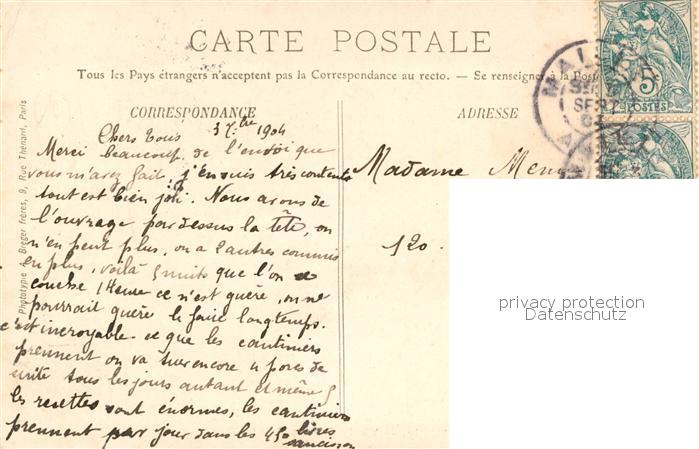 CARTE POSTALE
Tous les Pays étrangers n'acceptent pas la Correspondance au recto. — Se renseigner à la Poste
CORRESPONDANCE
ADRESSE
Chers tous 3 7bre 1904
Merci beaucoup de l'envoi que
vous m'avez fait, j'en suis très contente
tout est bien joli. Nous avons de
l'ouvrage par dessus la tête, on
n'en peut plus, on a 2 autres commis
en plus, voilà 5 nuits que l'on se
couche 1 heure ce n'est guère, on ne
pourrait guère le faire longtemps.
c'est incroyable ce que les cantiniers
prennent on va tuer encore 4 porcs de
suite tous les jours autant et même 5
les recettes sont énormes, les cantiniers
prennent par jour dans les 450 livres
saucisson
Madame
120.
Phototypie A. Breger frères, 9, Rue Thénard, Paris
5c
POSTES
MAI
SEPT
privacy protection
Datenschutz